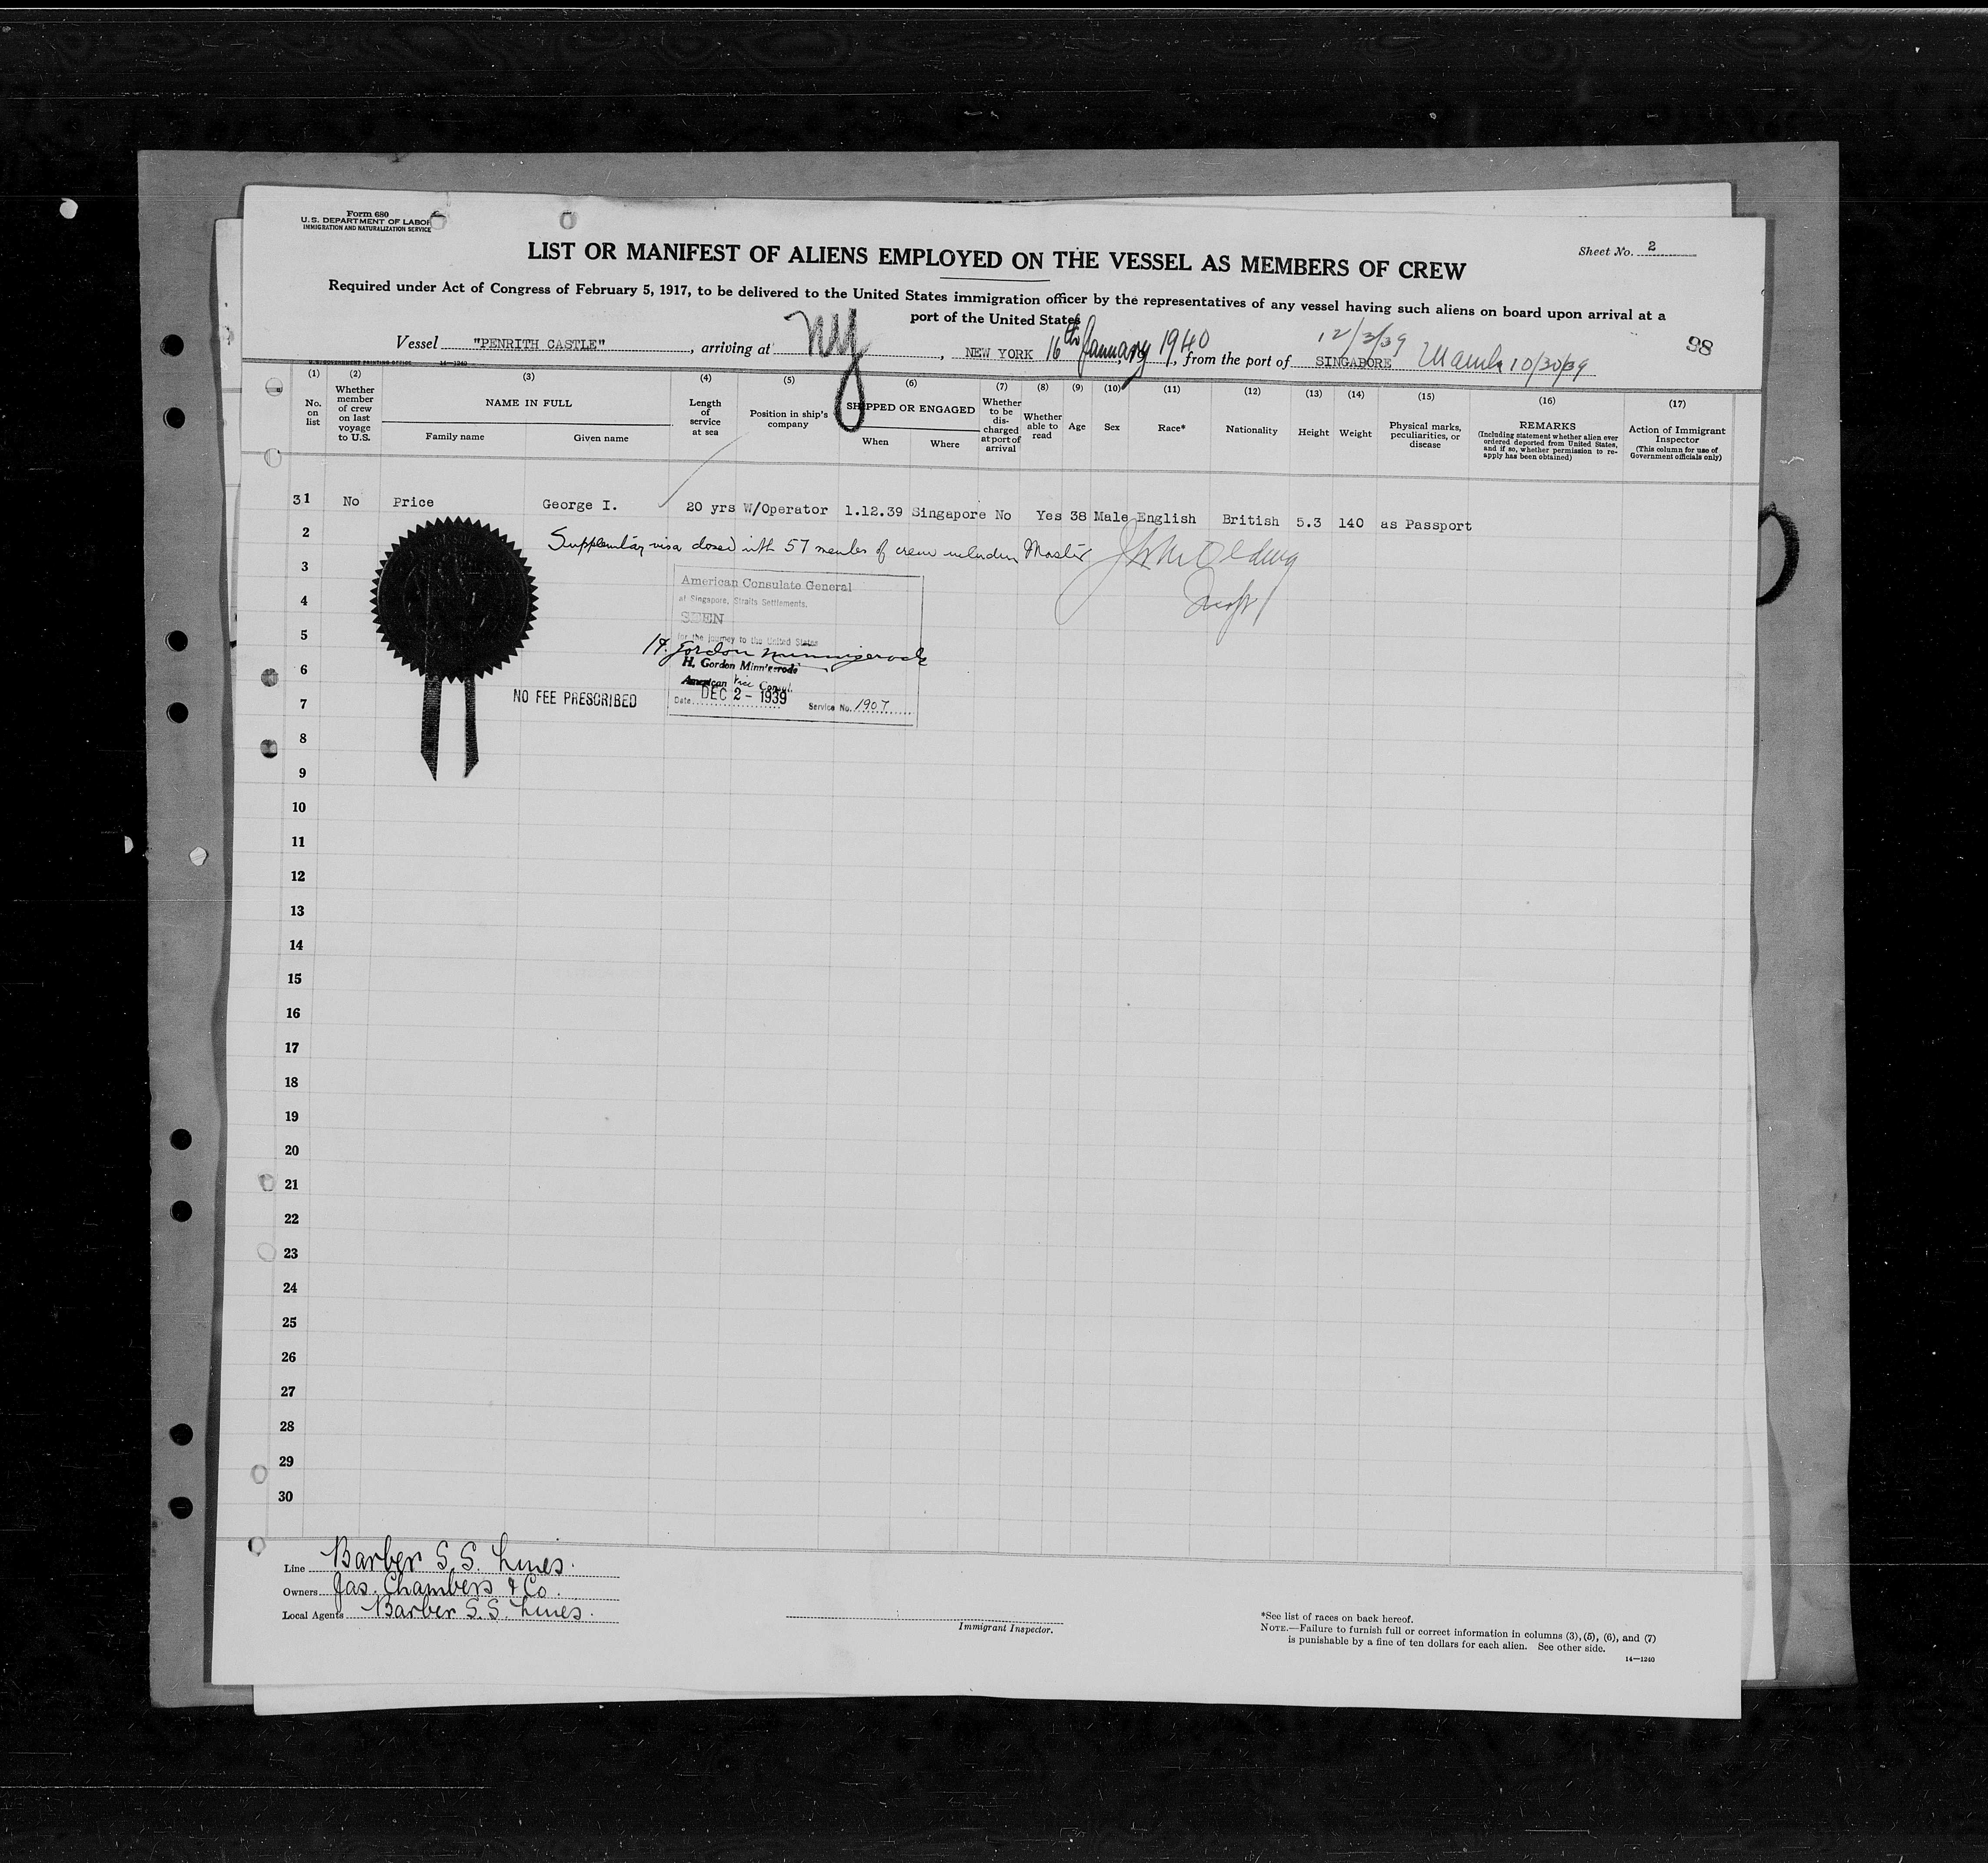 Form 680
U.S. DEPARTMENT OF LABOR
IMMIGRATION AND NATURALIZATION SERVICE
Sheet No. 2
LIST OR MANIFEST OF ALIENS EMPLOYED ON THE VESSEL AS MEMBERS OF CREW
Required under Act of Congress of February 5, 1917, to be delivered to the United States immigration officer by the representatives of any vessel having such aliens on board upon arrival at a
port of the United States
12/3/39
98
Vessel "PENRITH CASTLE", arriving at NY, NEW YORK 16th January 1940, from the port of SINGAPORE Manila 10/30/39
U.S. GOVERNMENT PRINTING OFFICE 14—1240
(1) (2) (3) (4) (5) (6) (7) (8) (9) (10) (11) (12) (13) (14) (15) (16) (17)
No. on list
Whether member of crew on last voyage to U.S.
NAME IN FULL
Family name
Given name
Length of service at sea
Position in ship's company
SHIPPED OR ENGAGED
When
Where
Whether to be discharged at port of arrival
Whether able to read
Age
Sex
Race*
Nationality
Height
Weight
Physical marks, peculiarities, or disease
REMARKS
(Including statement whether alien ever ordered deported from United States, and if so, whether permission to reapply has been obtained)
Action of Immigrant Inspector
(This column for use of Government officials only)
31 No Price George I. 20 yrs W/Operator 1.12.39 Singapore No Yes 38 Male English British 5.3 140 as Passport
2 Supplementary visa closed with 57 members of crew including Master
3
American Consulate General
at Singapore, Straits Settlements.
4
SEEN
5
for the journey to the United States
H. Gordon Minnigerode
6
H. Gordon Minnigerode
American Vice Consul.
NO FEE PRESCRIBED
7
Date DEC 2 - 1939 Service No. 1907
8
9
10
11
12
13
14
15
16
17
18
19
20
21
22
23
24
25
26
27
28
29
30
Line Barber S.S. Lines.
Owners Jas. Chambers & Co.
Local Agents Barber S.S. Lines.
Immigrant Inspector.
*See list of races on back hereof.
NOTE.—Failure to furnish full or correct information in columns (3), (5), (6), and (7)
is punishable by a fine of ten dollars for each alien. See other side.
14—1240